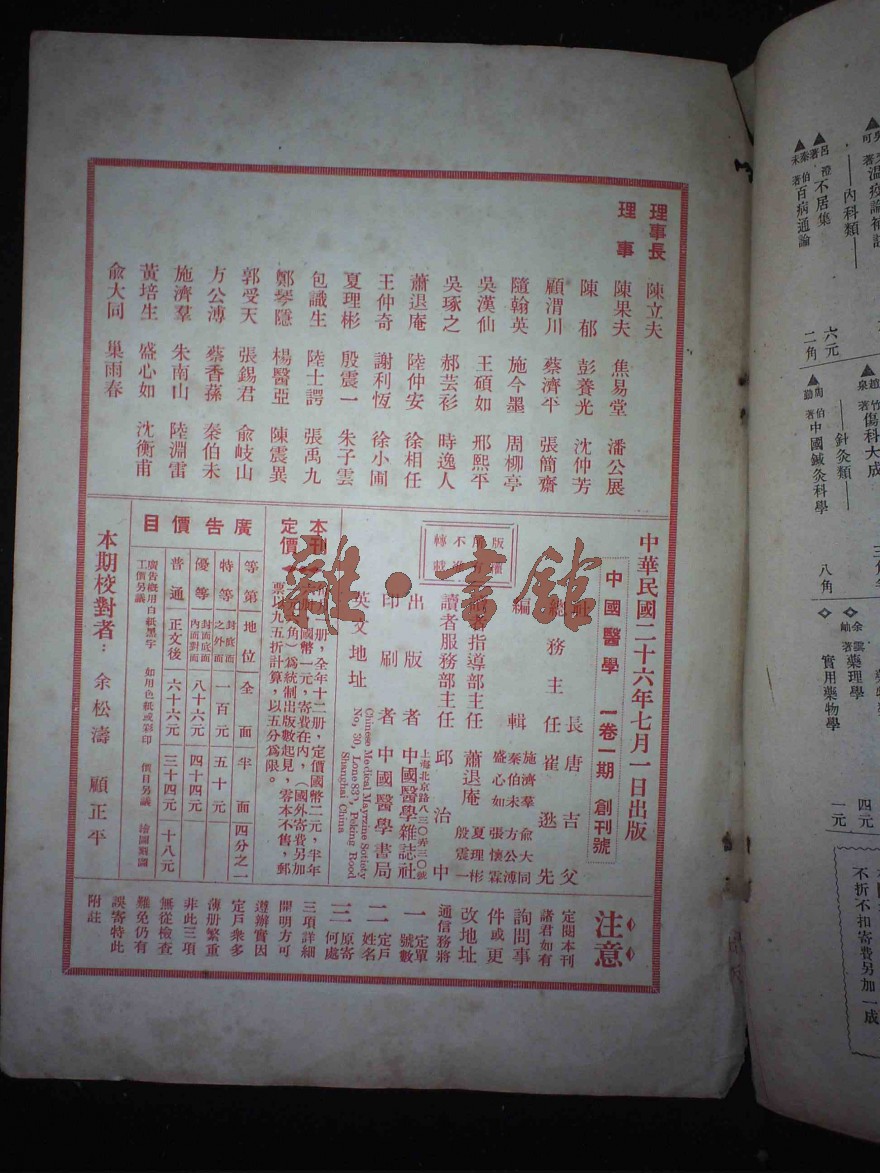 理事長 陳立夫
理事 陳果夫 焦易堂 潘公展
陳郁 彭養光 沈仲芳
顧渭川 蔡濟平 張簡齋
隨翰英 施今墨 周柳亭
吳漢仙 王碩如 邢熙平
吳琢之 郝芸衫 時逸人
蕭退庵 陸仲安 徐相任
王仲奇 謝利恆 徐小圃
夏理彬 殷震一 朱子雲
包識生 陸士諤 張禹九
鄭琴隱 楊醫亞 陳震異
郭受天 張錫君 俞岐山
方公溥 蔡香蓀 秦伯未
施濟羣 朱南山 陸淵雷
黃培生 盛心如 沈衡甫
俞大同 巢雨春
中華民國二十六年七月一日出版
中國醫學 一卷一期 創刊號
版權
不准
轉載
社長 唐吉父
總務主任 崔逖先
編輯 施濟羣 俞大同
秦伯未 方公溥
盛心如 張懷霖
指導部主任 蕭退庵 夏理彬
殷震一
讀者服務部主任 邱治中
出版者 中國醫學雜誌社
上海北京路八三〇弄三〇號
印刷者 中國醫學書局
英文地址
Chinese Medical Mayrzine Sotiety
No, 30, Lone 83?, Peking Rood
Shanghai China
本刊定價
月一册,全年十二册,定價國幣二元,半年
國幣一元,寄費在內,(國外寄費另加
角)爲統制出版數起見,零本不售,郵
票以九五折計算,以五分爲限。
廣告價目
等第 地位 全面 半面 四分之一
特等 對底面之外面 一百元 五十元
優等 封面底面內面對面 八十六元 四十四元
普通 正文後 六十六元 三十四元 十八元
廣告概用白紙黑字 如用色紙或彩印 價目另議 繪圖刻圖
工價另議
本期校對者:余松濤 顧正平
注意
定閱本刊
諸君如有
詢問事
件或更
改地址
通信務將
一 定單號數
二 定戶姓名
三 原寄何處
三項詳細
開明方可
遵辦實因
定戶衆多
薄册繁重
非此三項
無從檢查
難免仍有
誤寄特此
附註
雜·書館
溫疫論補註
——內科類——
呂澄著 不居集 六元
秦伯未著 百病通論 二角
傷科大成
——針灸類——
周伯勤著 中國鍼灸科學 八角
余雲岫著 藥理學 四元
實用藥物學 一元
不折不扣寄費另加一成